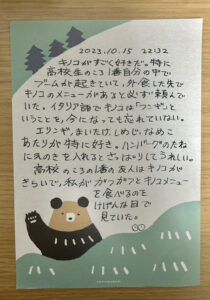 2023.10.15 22:32
キノコがすごく好きだ。特に
高校生のころ1番自分の中で
ブームが起きていて、外食した先で
キノコのメニューがあると必ず頼んで
いた。イタリア語でキノコは「フンギ」と
いうことを、今になっても忘れていない。
エリンギ、まいたけ、しめじ、なめこ
あたりが特に好き。ハンバーグのたね
にえのきを入れると、さっぱりしてうれしい。
高校のころの1番の友人はキノコが
きらいで、私がガツガツとキノコメニュー
を食べるのを
けげんな目で
見ていた。